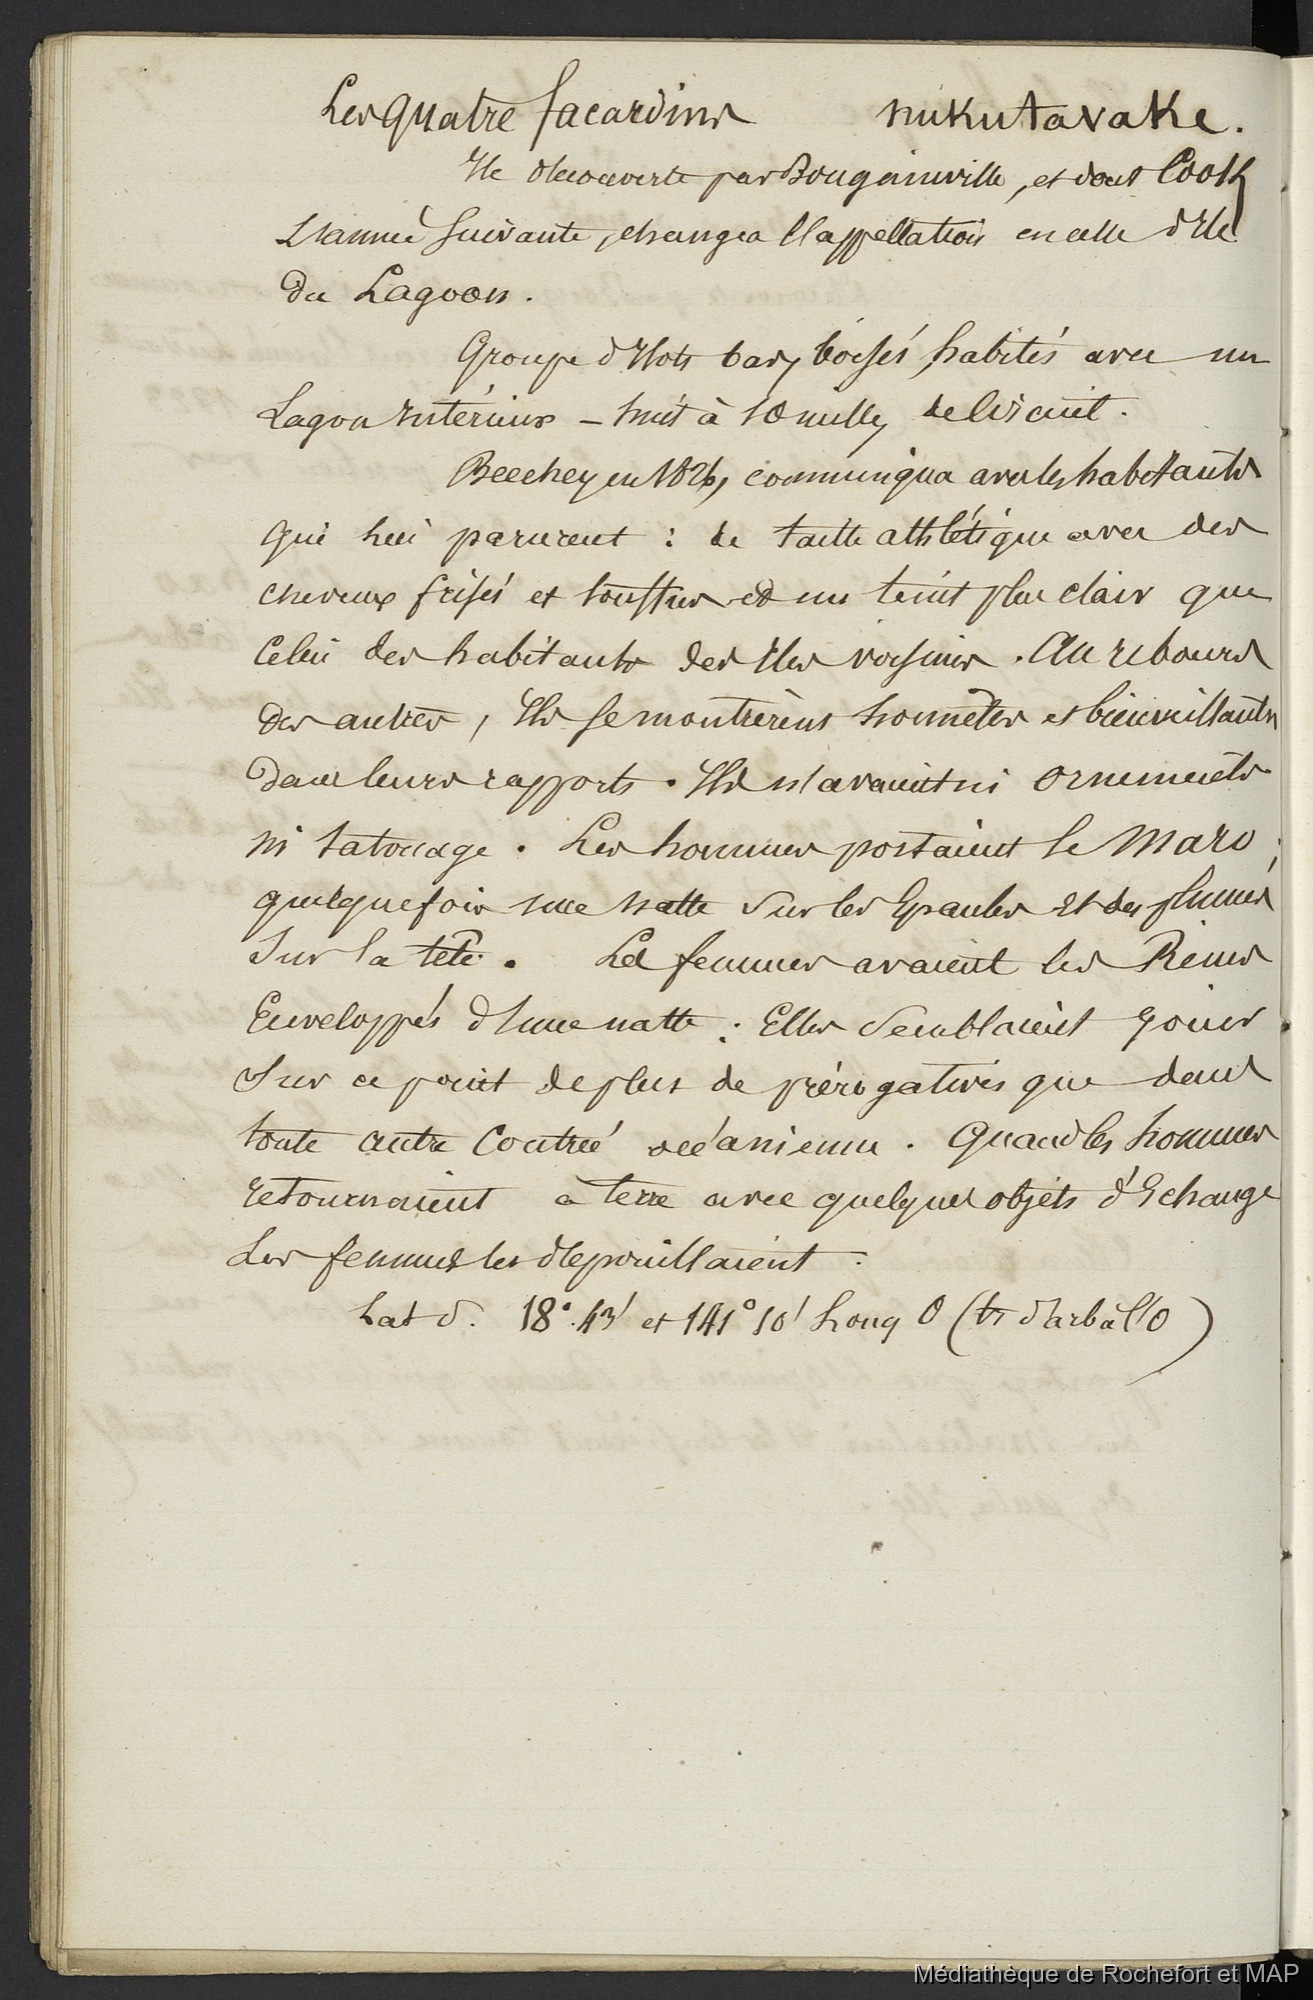 Les quatre facardins nukutavake.
Ile découverte par Bougainville, et dont Cook
L'année suivante, changea l'appellation en celle d'Ile
du Lagoon.
Groupe d'Ilots bas, boisés, habités avec un
Lagon Intérieur – huit à 10 milles de circuit.
Beechey en 1826, communiqua avec les habitants
qui lui parurent : de taille athlétique avec des
cheveux frisés et touffus et un teint plus clair que
Celui des habitants des Iles voisines. Au rebours
des autres, Ils se montrèrens honnêtes et bienveillants
dans leurs rapports. Ils n'avaient ni ornements
ni tatouage. Les hommes portaient le Maro ;
quelquefois une natte sur les Epaules et des plumes
sur la tête. Les femmes avaient les Reins
Enveloppés d'une natte : Elles semblaient jouir
sur ce point de plus de prérogatives que dans
toute autre Contrée océanienne. Quand les hommes
retournaient à terre avec quelques objets d'Echange
Les femmes les dépouillaient.
Lat d. 18°.43' et 141° 10' Long O (tr d'arb à l'O)
Médiathèque de Rochefort et MAP